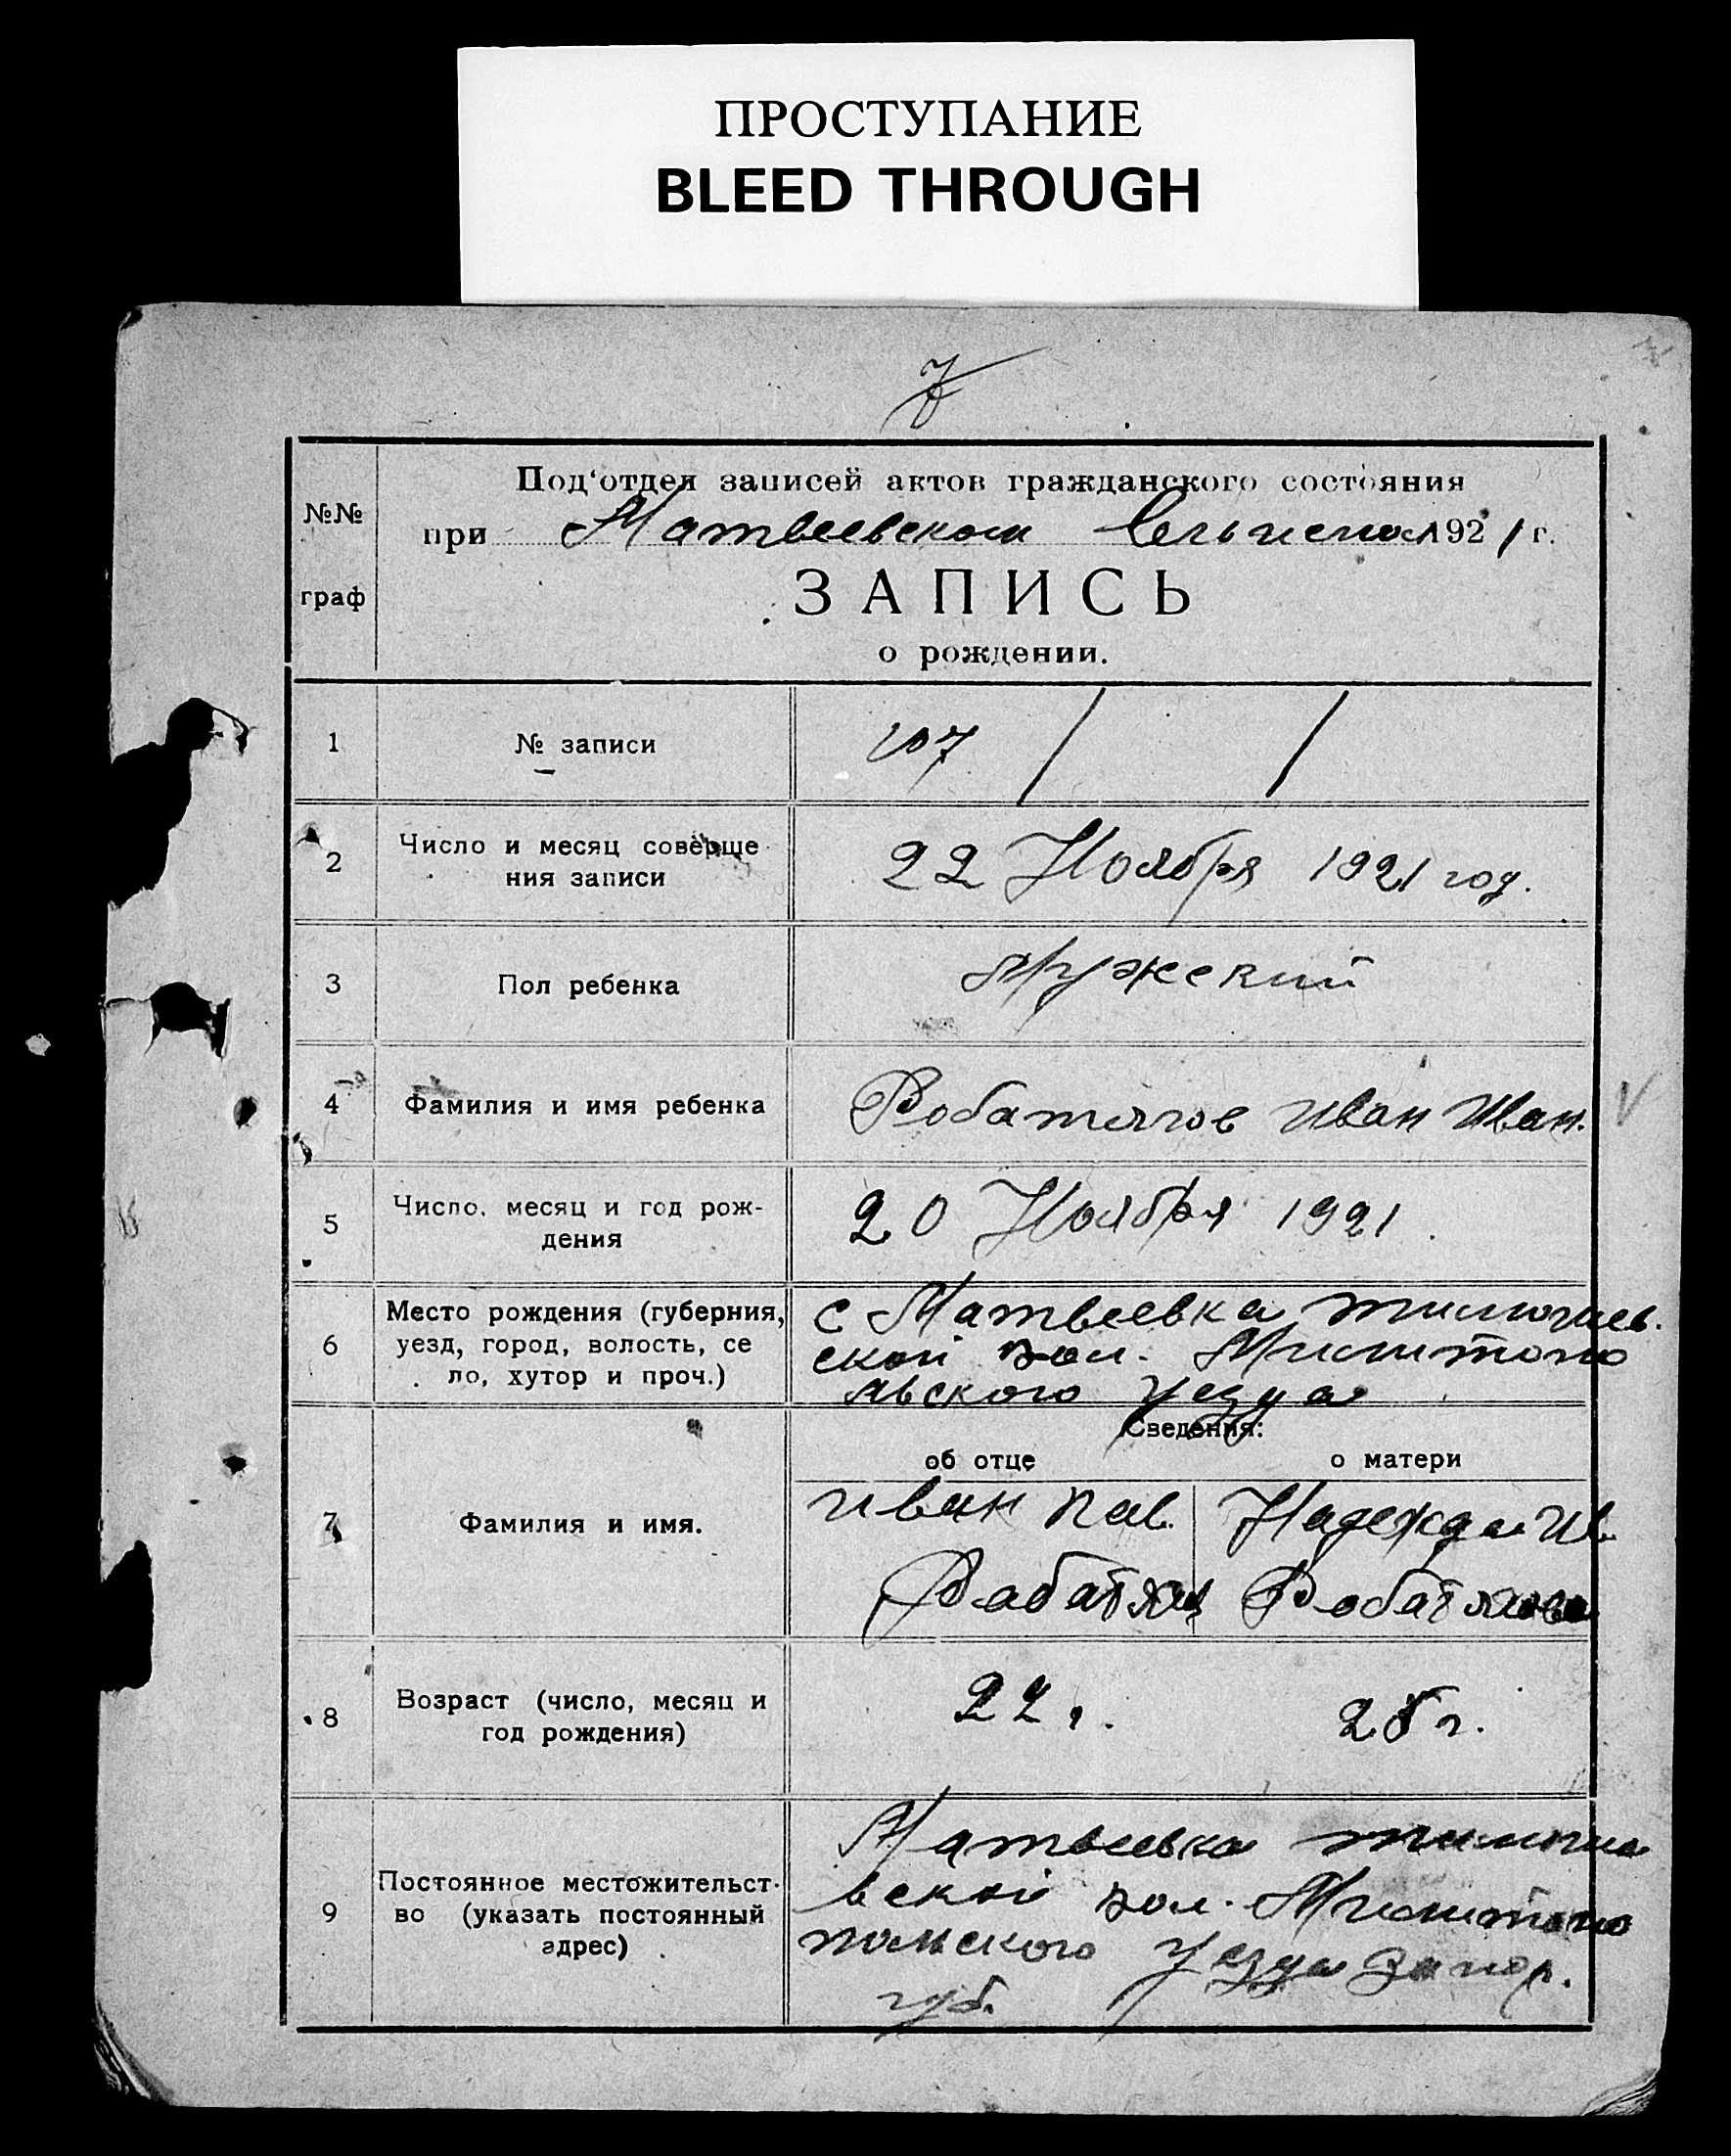 ПРОСТУПАНИЕ
BLEED THROUGH
7
Под‘отдел записей актов гражданского состояния
№№
при Матвеевском 192 1 г.
граф
ЗАПИСЬ
о рождении.
1 № записи 107
2 Число и месяц соверше
ния записи 22 Ноября 1921 год.
3 Пол ребенка Мужский
4 Фамилия и имя ребенка Робатягов Иван Иван.
5 Число, месяц и год рож-
дения 20 Ноября 1921
6 Место рождения (губерния, с Матвеевка
уезд, город, волость, се ской вол. Мелитопо
ло, хутор и проч.) льского уезда
Сведения:
об отце о матери
7 Фамилия и имя. Иван Пав. Надежда Ив.
8 Возраст (число, месяц и
год рождения) 22 г. 25 г.
Матвеевка
9 Постоянное местожительст-
во (указать постоянный вской вол. Мелитопо
адрес) польского уезда Запор.
губ.